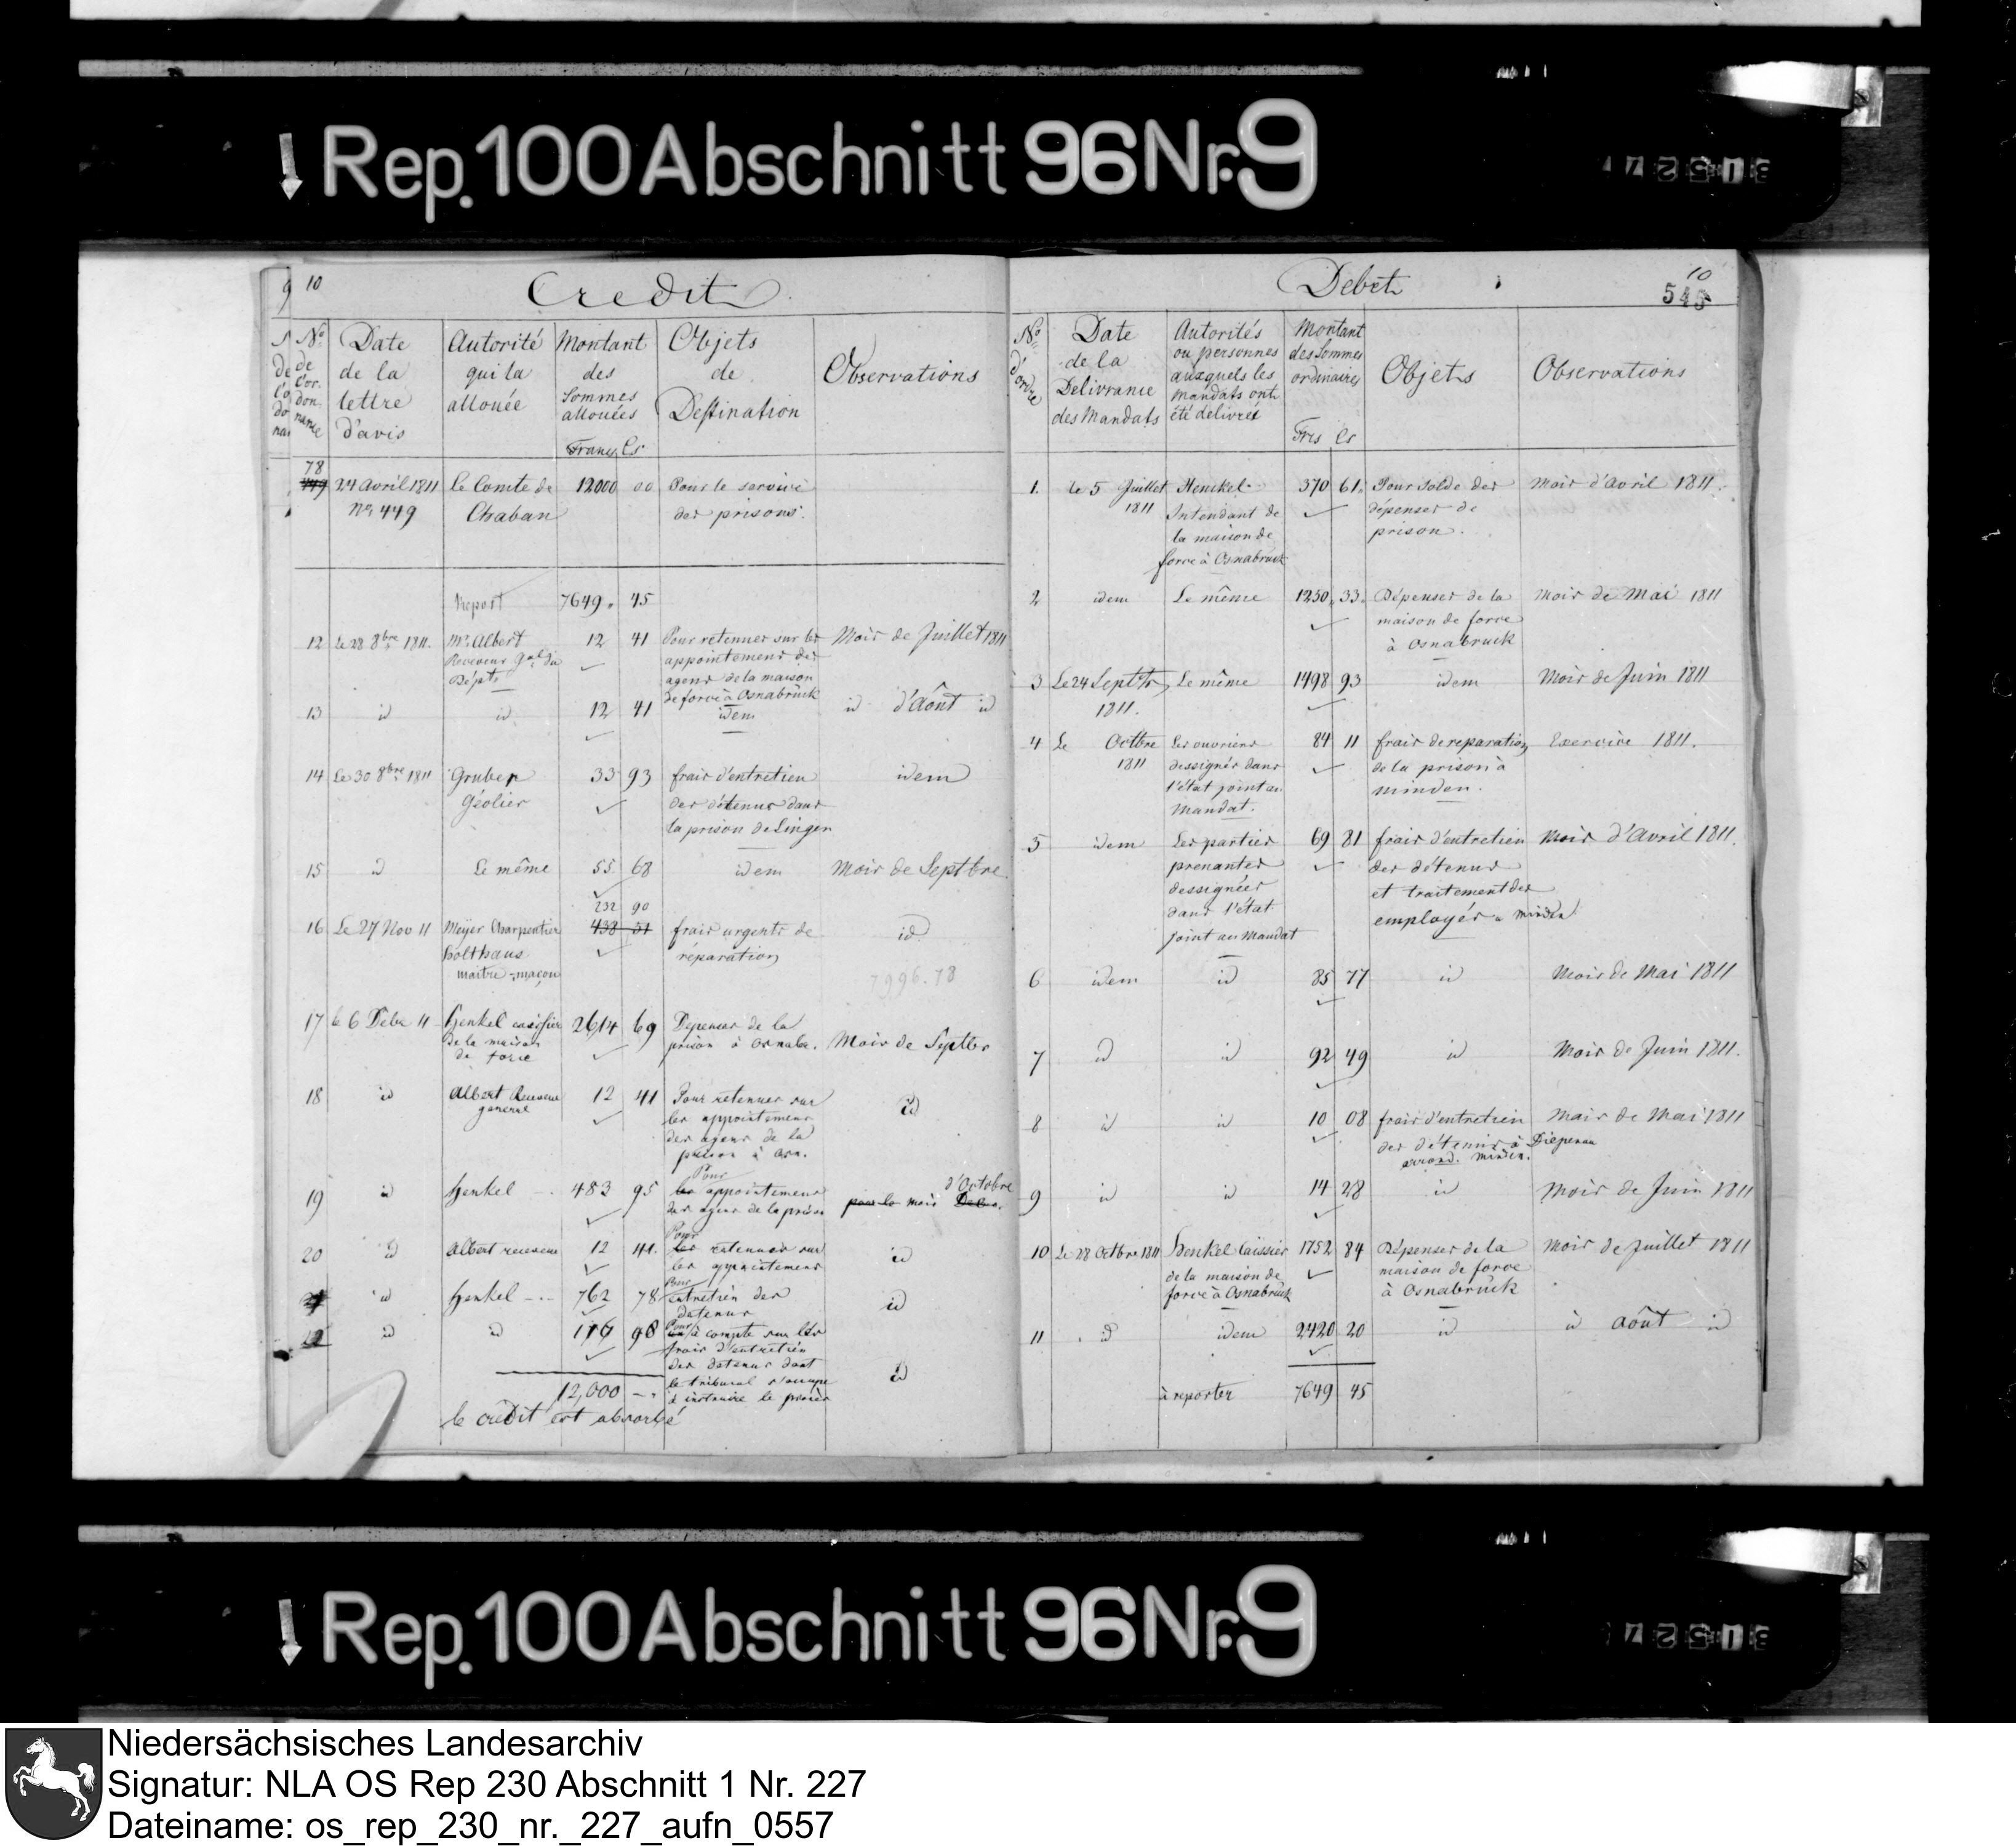 Rep. 100 Abschnitt 96 Nr. 9
9 10 Credit
No. de l'or.don.nance | Date de la lettre d'avis | Autorité qui la allouée | Montant des Sommes allouées Francs Cs | Objets de Destination | Observations
78 449 | 24 avril 1811 | Le Comte de | 12000 00 | Pour le service
No. 449 | Chaban | des prisons.
Report | 7649. 45
12 | Le 28 8bre 1811. | Mr. Albert | 12 41 | Pour retenues sur les | Mois de Juillet 1811
Receveur Gal. du | appointemens des
Dépt. | agens de la maison
de force à Osnabrück
13 | id | id | 12 41 | idem | id d'Août id
14 | Le 30 8bre 1811 | Gruber | 33 93 | frais d'entretien | idem
Géolier | des détenus dans
la prison de Lingen
15 | id | Le même | 55 68 | idem | Mois de Septbre.
232 90
16 | Le 27 Nov 11 | Meyer Charpentier | 438 51 | frais urgents de | id
Holthaus | réparation
maître-maçon
7996.78
17 | le 6 Debr 11 | Henkel caissier | 2614 69 | Depenses de la
de la maison | prison à Osnabr. | Mois de Septbr
de force
18 | id | Albert Receveur | 12 41 | Pour retenues sur | id
general | les appointemens
des agens de la
prison à Osn.
Pour | d'Octobre
19 | id | Henkel | 483 95 | les appointemens
des agens de la prison | pour le mois Debr.
Pour
20 | id | Albert receveur | 12 41. | les retenues sur | id
les appointemens
Pour
21 | id | Henkel | 762 78 | entretien des | id
detenus
Pour
22 | id | id | 116 98 | à compte sur les
frais d'entretien
des detenus dont
le tribunal s'occupe | id
12,000 | à instruire le procès
le credit est absorbé
Debet
10
545
No. d'ordre | Date de la Delivrance des Mandats | Autorités ou personnes auxquels les Mandats ont été delivrés | Montant des Sommes ordinaires Frcs Cs | Objets | Observations
1. | Le 5 Juillet | Henckel | 370 61. | Pour Solde des | Mois d'Avril 1811.
1811 | Intendant de | dépenses de
la maison de | prison.
force à Osnabruck
2 | idem | Le même | 1250. 33. | Dépenses de la | Mois de Mai 1811
maison de force
à Osnabruck
3 | Le 24 Septbr | Le même | 1498 93 | idem | Mois de Juin 1811
1811.
4 | Le Octbre | Les ouvriers | 84 11 | frais de reparation | Exercice 1811.
1811 | dessignés dans | de la prison à
l'état joint au | minden.
Mandat.
5 | idem | Les parties | 69 81 | frais d'entretien | Mois d'Avril 1811.
prenantes | des détenus
dessignées | et traitement des
dans l'état | employés a Minden
joint au Mandat
6 | idem | id | 85 77 | id | Mois de Mai 1811
7 | id | id | 92 49 | id | Mois de Juin 1811.
8 | id | id | 10 08 | frais d'entretien | Mois de Mai 1811
des détenus à Diepenau
arrond. Minden.
9 | id | id | 14 28 | id | Mois de Juin 1811
10 | Le 28 Octbre 1811 | Henkel Caissier | 1752 84 | Dépenses de la | Mois de Juillet 1811
de la maison de | maison de force
force à Osnabrück | à Osnabrück
11 | id | idem | 2420 20 | id | id Août id
à reporter | 7649 45
Rep. 100 Abschnitt 96 Nr. 9
Niedersächsisches Landesarchiv
Signatur: NLA OS Rep 230 Abschnitt 1 Nr. 227
Dateiname: os_rep_230_nr._227_aufn_0557